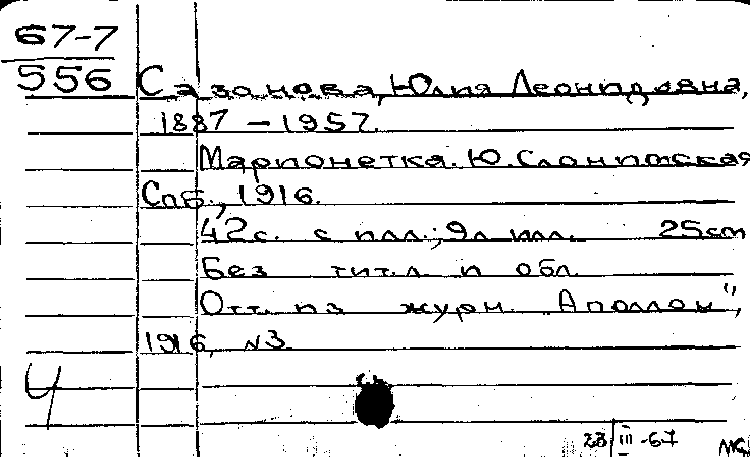 67-7
556
Сазонова, Юлия Леонидовна,
1887 - 1957.
Марионетка. Ю. Слонимская
Спб., 1916.
42 с. с илл.; 9 л илл. 25 cm
Без тит. л и обл.
Отт. из журн Аполлон",
1916, N3.
Ч
23/III-67